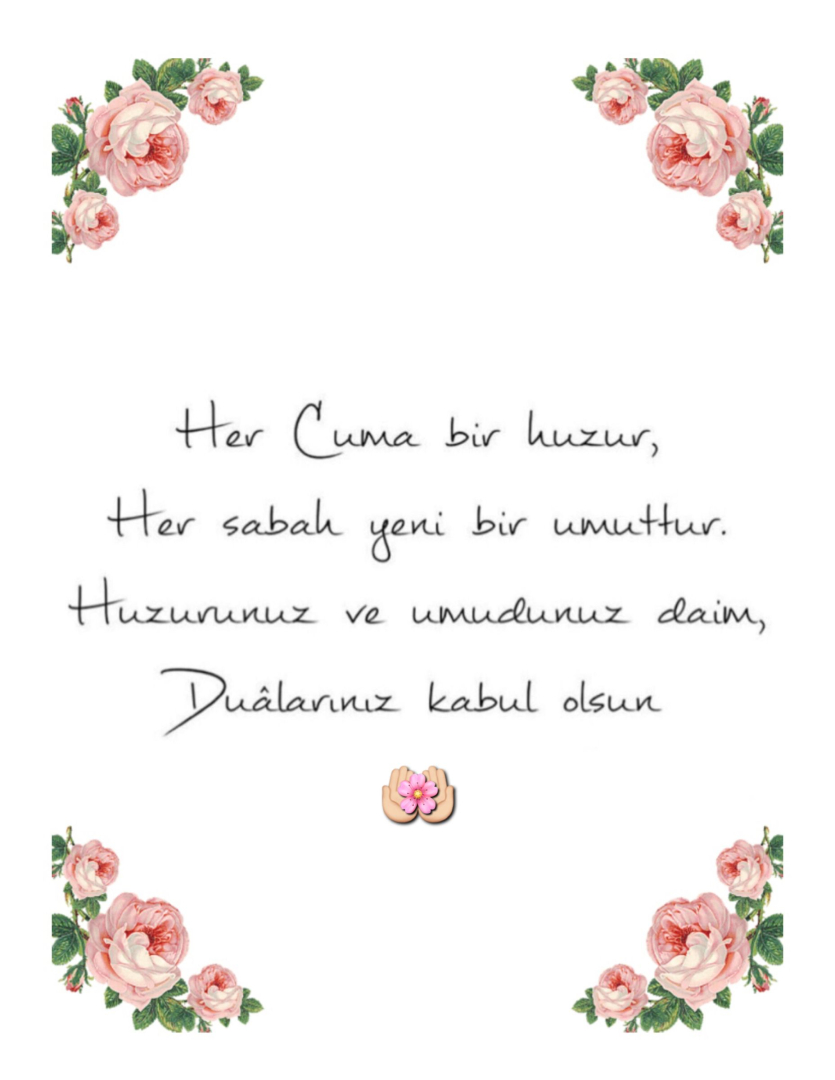 Her Cuma bir huzur,
Her sabah yeni bir umuttur.
Huzurunuz ve umudunuz daim,
Duâlarınız kabul olsun